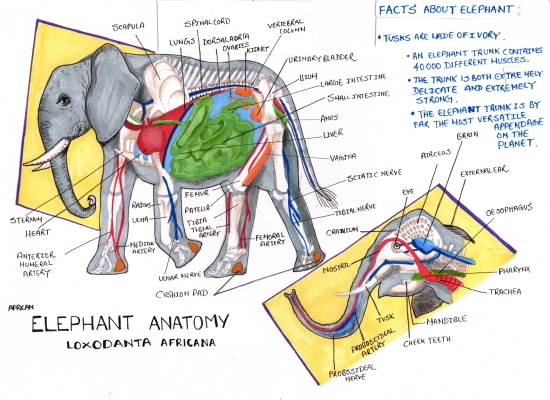 FACTS ABOUT ELEPHANT:
• TUSKS ARE MADE OF IVORY.
• AN ELEPHANT TRUNK CONTAINS
40000 DIFFERENT MUSCLES.
• THE TRUNK IS BOTH EXTREMELY
DELICATE AND EXTREMELY
STRONG.
• THE ELEPHANT TRUNK IS BY
FAR THE MOST VERSATILE
APPENDAGE
ON THE
PLANET.
SCAPULA
SPINALCORD
VERTEBRAL
COLUMN
LUNGS
DORSALAORTA
OVARIES
KIDNEY
URINARYBLADDER
ILIUM
LARGE INTESTINE
SMALL INTESTINE
ANUS
LIVER
VAGINA
SCIATIC NERVE
TIBIAL NERVE
FEMUR
PATELLA
TIBIA
TIBIAL
ARTERY
FEMORAL
ARTERY
RADIUS
ULNA
STERNUM
HEART
ANTERIOR
HUMERAL
ARTERY
MEDIAN
ARTERY
ULNAR NERVE
CUSHION PAD
BRAIN
AIRCEOS
EXTERNALEAR
EYE
OESOPHAGUS
CRANIUM
NOSTRIL
PHARYNX
TRACHEA
TUSK
MANDIBLE
CHEEK TEETH
PROBOSCIDEAL
ARTERY
PROBOSIDEAL
NERVE
AFRICAN
ELEPHANT ANATOMY
LOXODANTA AFRICANA